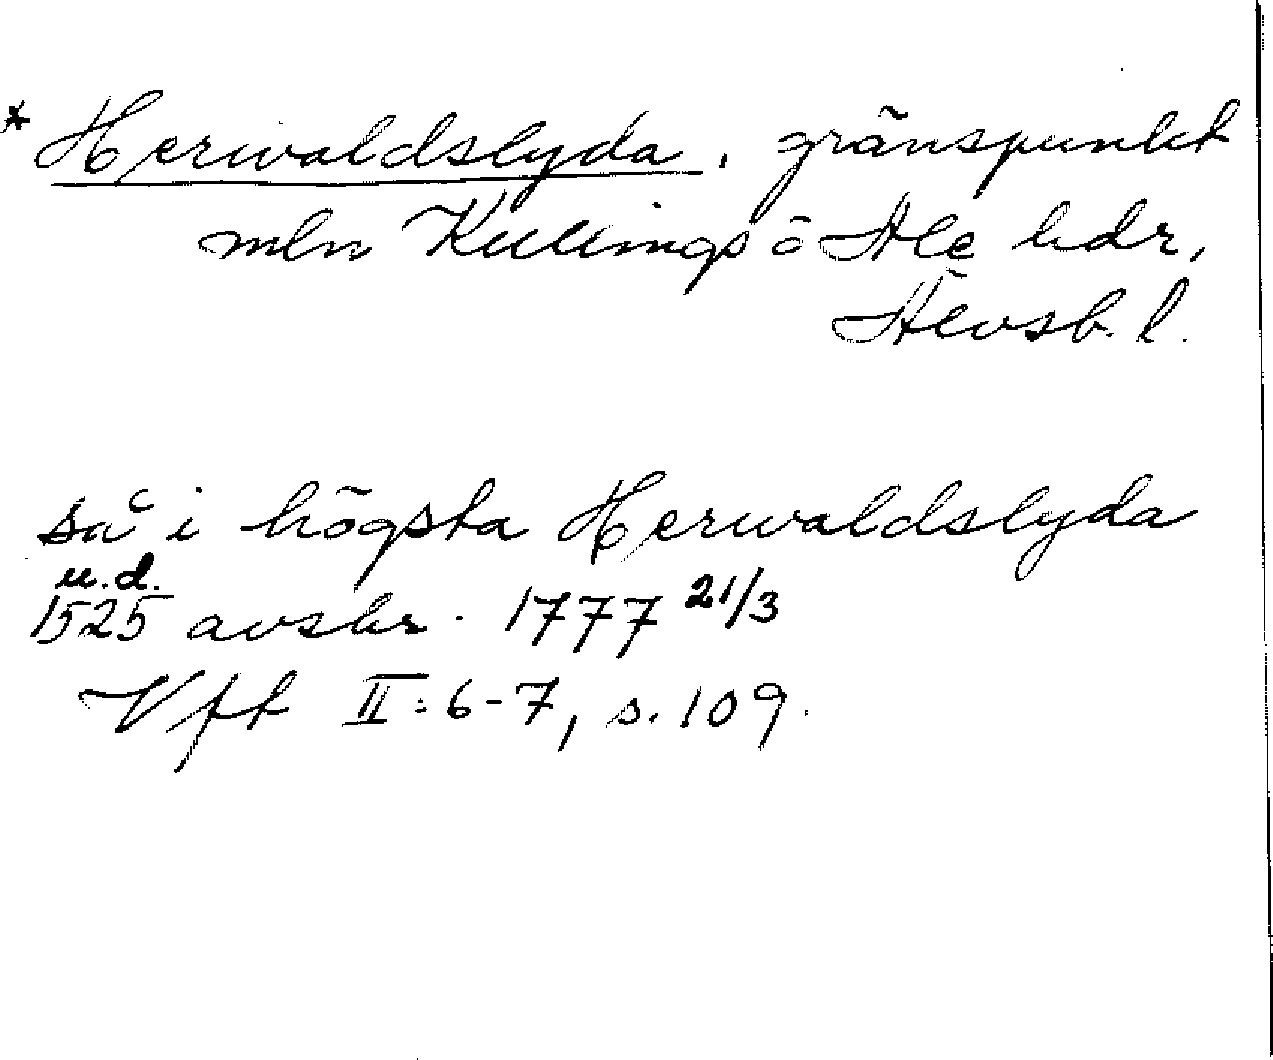 * Herwaldslyda, gränspunkt
mln Kullings o Ale hdr,
Älvsb. l.
så i högsta Herwaldslyda
u.d.
1525 avskr. 1777 21/3
Vft II:6-7, s. 109.